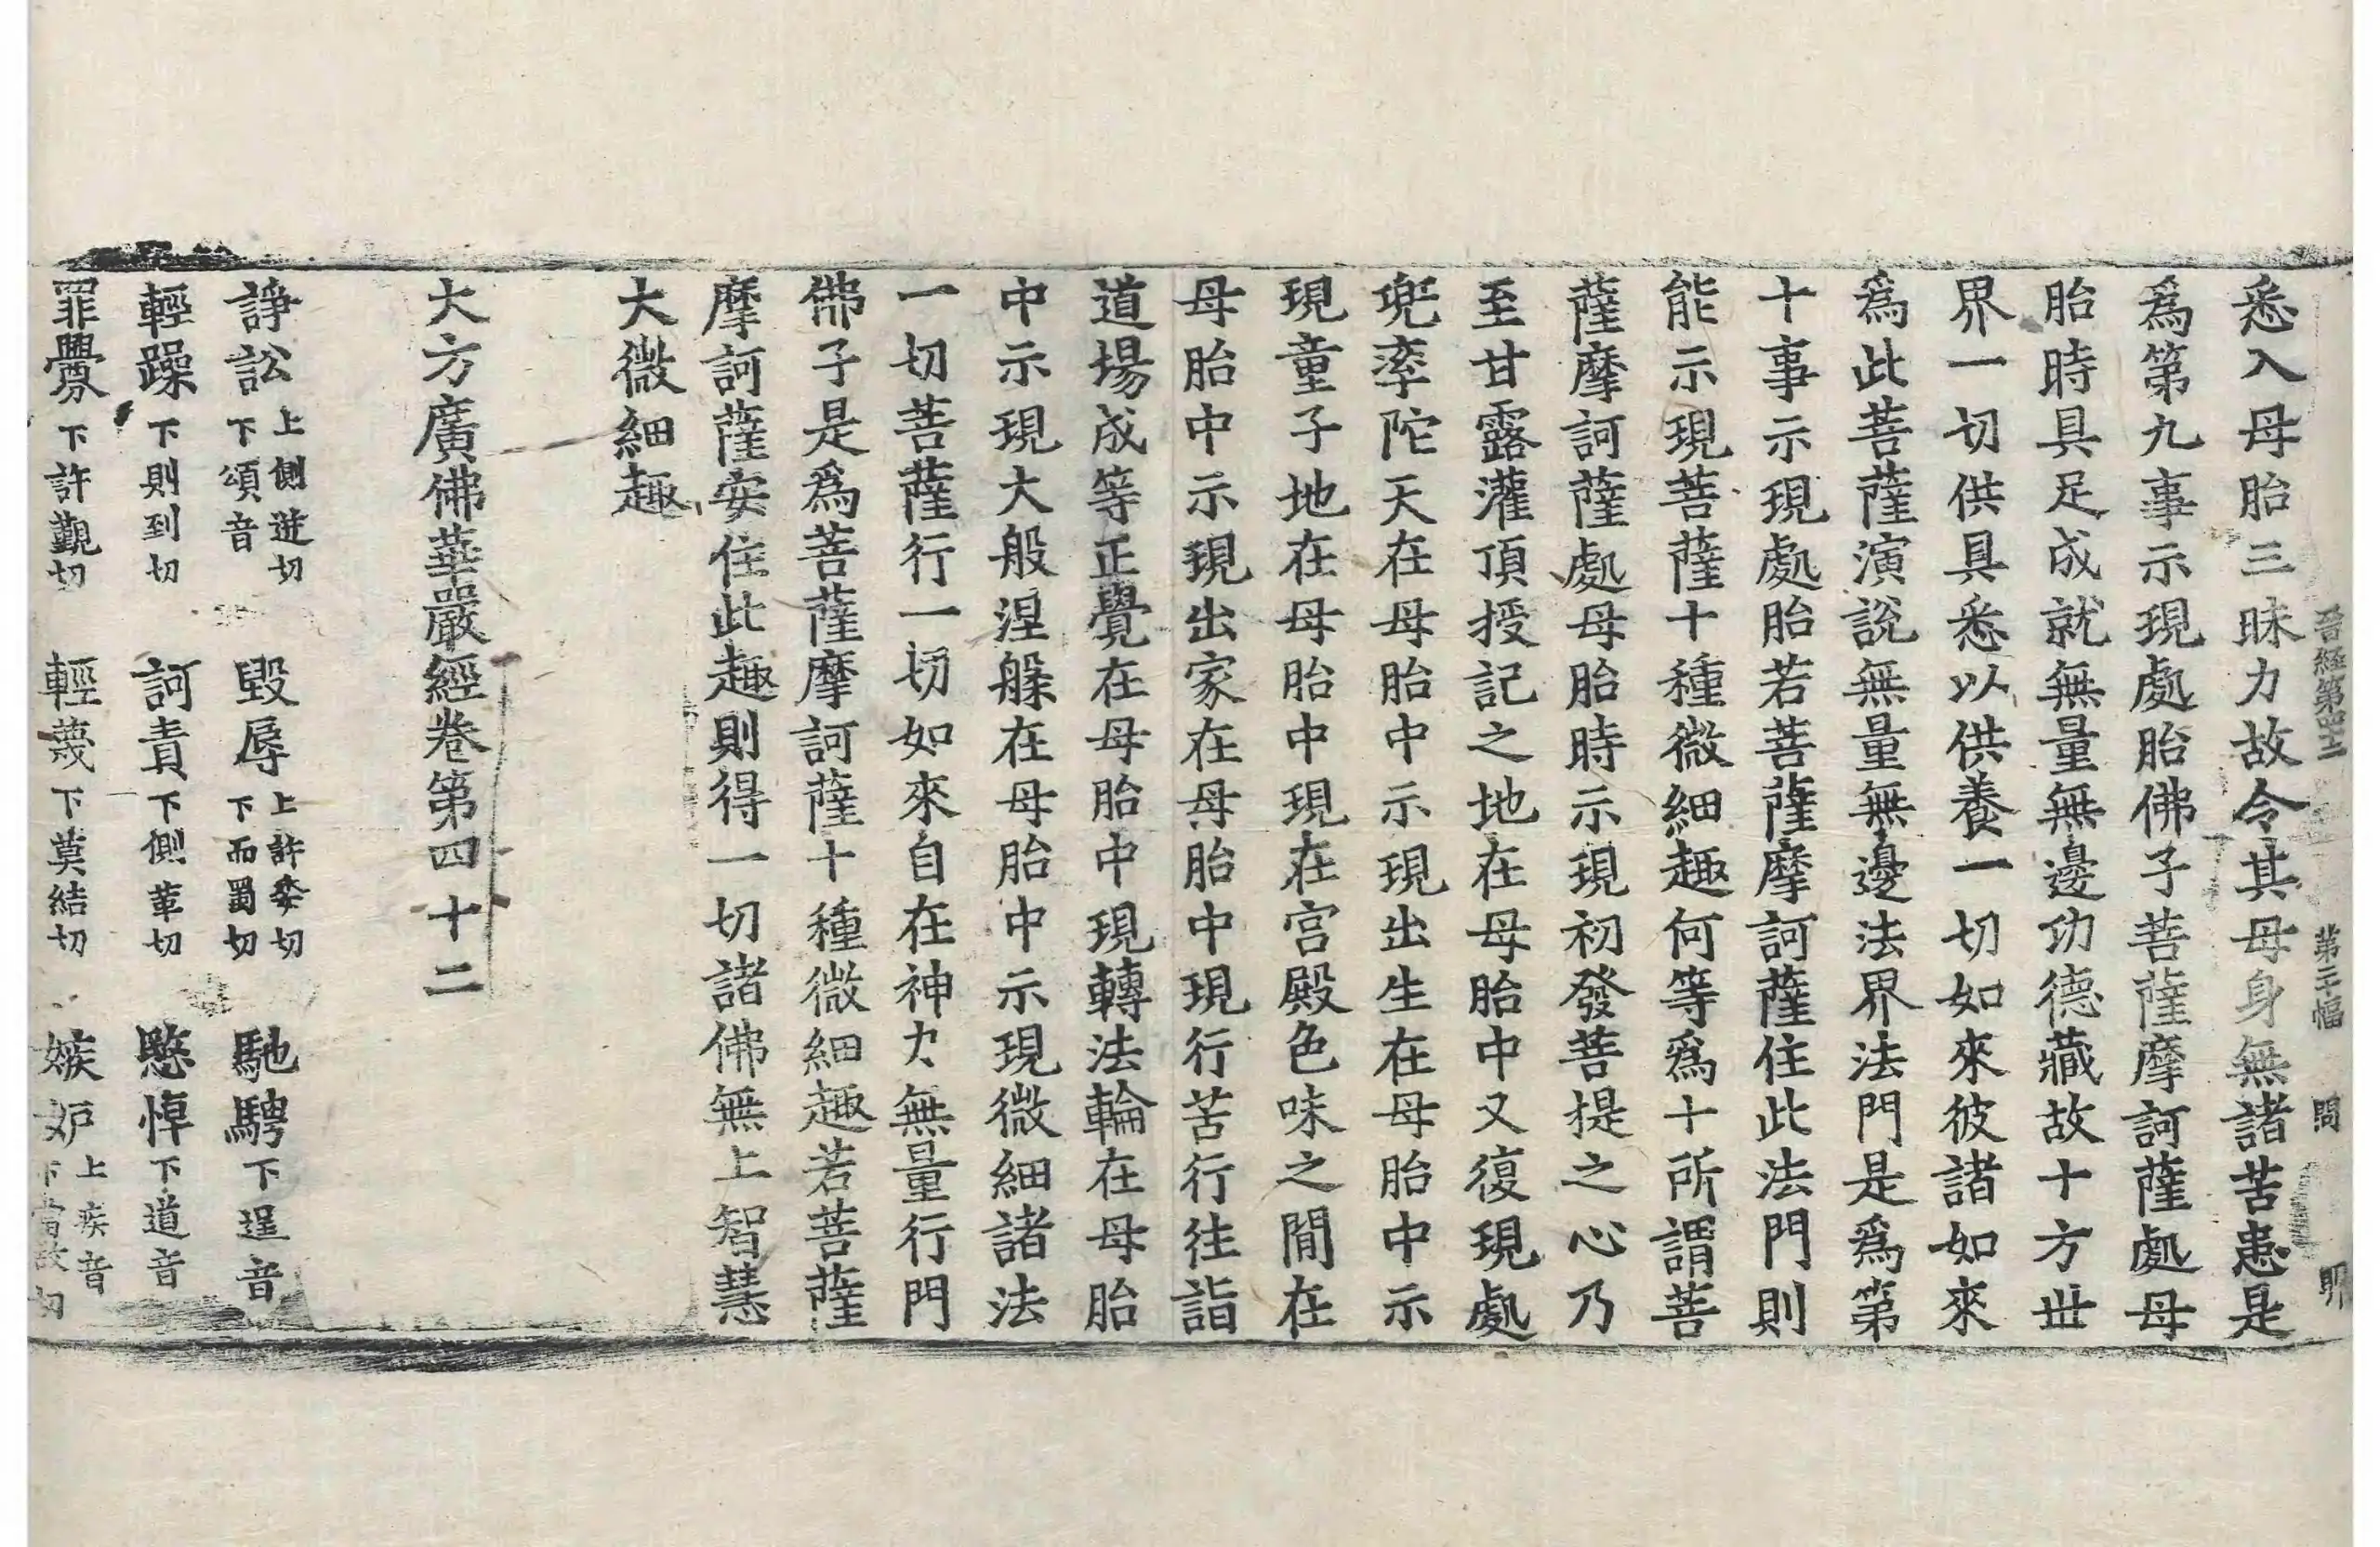 晉經第四十二 第二十幅 問 明
悉入母胎三昧力故令其母身無諸苦患是
爲第九事示現處胎佛子菩薩摩訶薩處母
胎時具足成就無量無邊功德藏故十方世
界一切供具悉以供養一切如來彼諸如來
爲此菩薩演說無量無邊法界法門是爲第
十事示現處胎若菩薩摩訶薩住此法門則
能示現菩薩十種微細趣何等爲十所謂菩
薩摩訶薩處母胎時示現初發菩提之心乃
至甘露灌頂授記之地在母胎中又復現處
兜率陀天在母胎中示現出生在母胎中示
現童子地在母胎中現在宮殿色味之間在
母胎中示現出家在母胎中現行苦行往詣
道場成等正覺在母胎中現轉法輪在母胎
中示現大般涅槃在母胎中示現微細諸法
一切菩薩行一切如來自在神力無量行門
佛子是爲菩薩摩訶薩十種微細趣若菩薩
摩訶薩安住此趣則得一切諸佛無上智慧
大微細趣
大方廣佛華嚴經卷第四十二
諍訟 上側迸切 下頌音 毀辱 上許委切 下而蜀切 馳騁 下逞音
輕躁 下則到切 訶責 下側革切 懸悼 下道音
罪釁 下許覲切 輕蔑 下莫結切 嫉妒 上疾音 下當故切